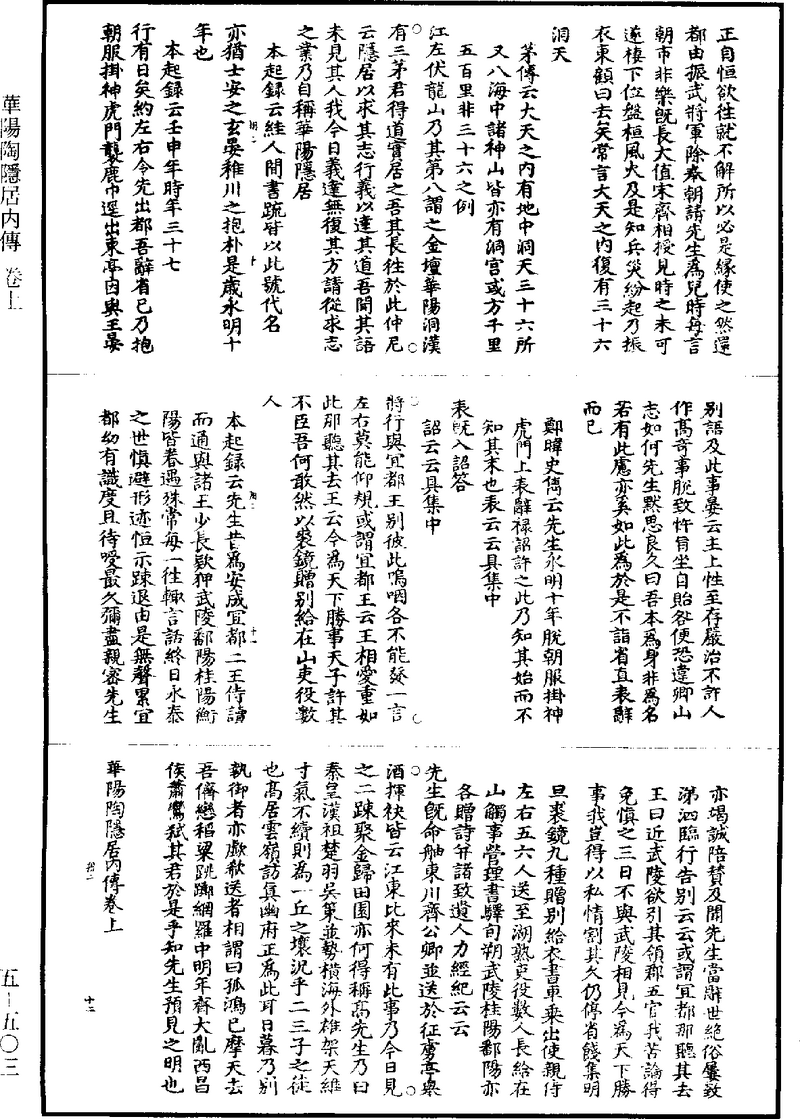 華陽陶隱居內傳 卷上
五－五〇三
正自恒欲往就不解所以必是緣使之然還
都由振武將軍除奉朝請先生為兒時每言
朝市非樂旣長大值宋齊相授見時之未可
遂棲下位盤桓風火及是知兵災紛起乃振
衣東顧曰去矣常言大天之內復有三十六
洞天
茅傳云大天之內有地中洞天三十六所
又八海中諸神山皆亦有洞宮或方千里
五百里非三十六之例
江左伏龍山乃其第八謂之金壇華陽洞漢
有三茅君得道實居之吾其長往於此仲尼
云隱居以求其志行義以達其道吾聞其語
未見其人我今日義達無復其方請從求志
之業乃自稱華陽隱居
本起錄云維人間書疏皆以此號代名
亦猶士安之玄晏稚川之抱朴是歲永明十
年也
本起錄云壬申年時年三十七
行有日矣約左右令先出都吾辭省已乃抱
朝服掛神虎門襲鹿巾逕出東亭因與王晏
別語及此事晏云主上性至存嚴治不許人
作高奇事脫致忤旨坐自貽咎便恐違卿山
志如何先生黙思良久曰吾本為身非為名
若有此慮亦奚如此為於是不詣省直表辭
而已
鄭暐史儁云先生永明十年脫朝服掛神
虎門上表辭祿詔許之此乃知其始而不
知其末也表云云具集中
表旣入詔答
詔云云具集中
將行與宜都王別彼此嗚咽各不能發一言
左右莫能仰視或謂宜都王云王相愛重如
此那聽其去王云今為天下勝事天子許其
不臣吾何敢然以裘鏡贈別給在山吏役數
人
本起錄云先生昔為安成宜都二王侍讀
而通與諸王少長欵狎武陵鄱陽桂陽衡
陽皆眷遇殊常每一往輙言話終日永泰
之世愼避形迹恒示踈退由是無聲累宜
都幼有識度且待噯最久彌盡親密先生
亦竭誠陪贊及聞先生當辭世絶俗屢致
涕泗臨行告別云云或謂宜都那聽其去
王曰近武陵欲引其領郡五官我苦論得
免愼之三日不與武陵相見今為天下勝
事我豈得以私情割其久仍停省餞集明
旦裘鏡九種贈別給衣書車乗出使親侍
左右五六人送至湖熟克役數人長給在
山觸事營理書驛旬朔武陵桂陽鄱陽亦
各贈詩并諸致遺人力經紀云云
先生旣命舳東川齊公卿並送於征虜亭舉
酒揮袂皆云江東比來未有此事乃今日見
之二踈聚金歸田園亦何得稱高先生乃曰
秦皇漢祖楚羽吳策並勢橫海外雄架天維
寸氣不續則為一丘之壤况乎二三子之徒
也高居雲嶺訪眞幽府正為此耳日暮乃別
執御者亦歔欷送者相謂曰孤鴻已摩天去
吾儕戀稻粱跳躑網羅中明年齊大亂西昌
侯蕭鸞弑其君於是乎知先生預見之明也
華陽陶隱居內傳卷上